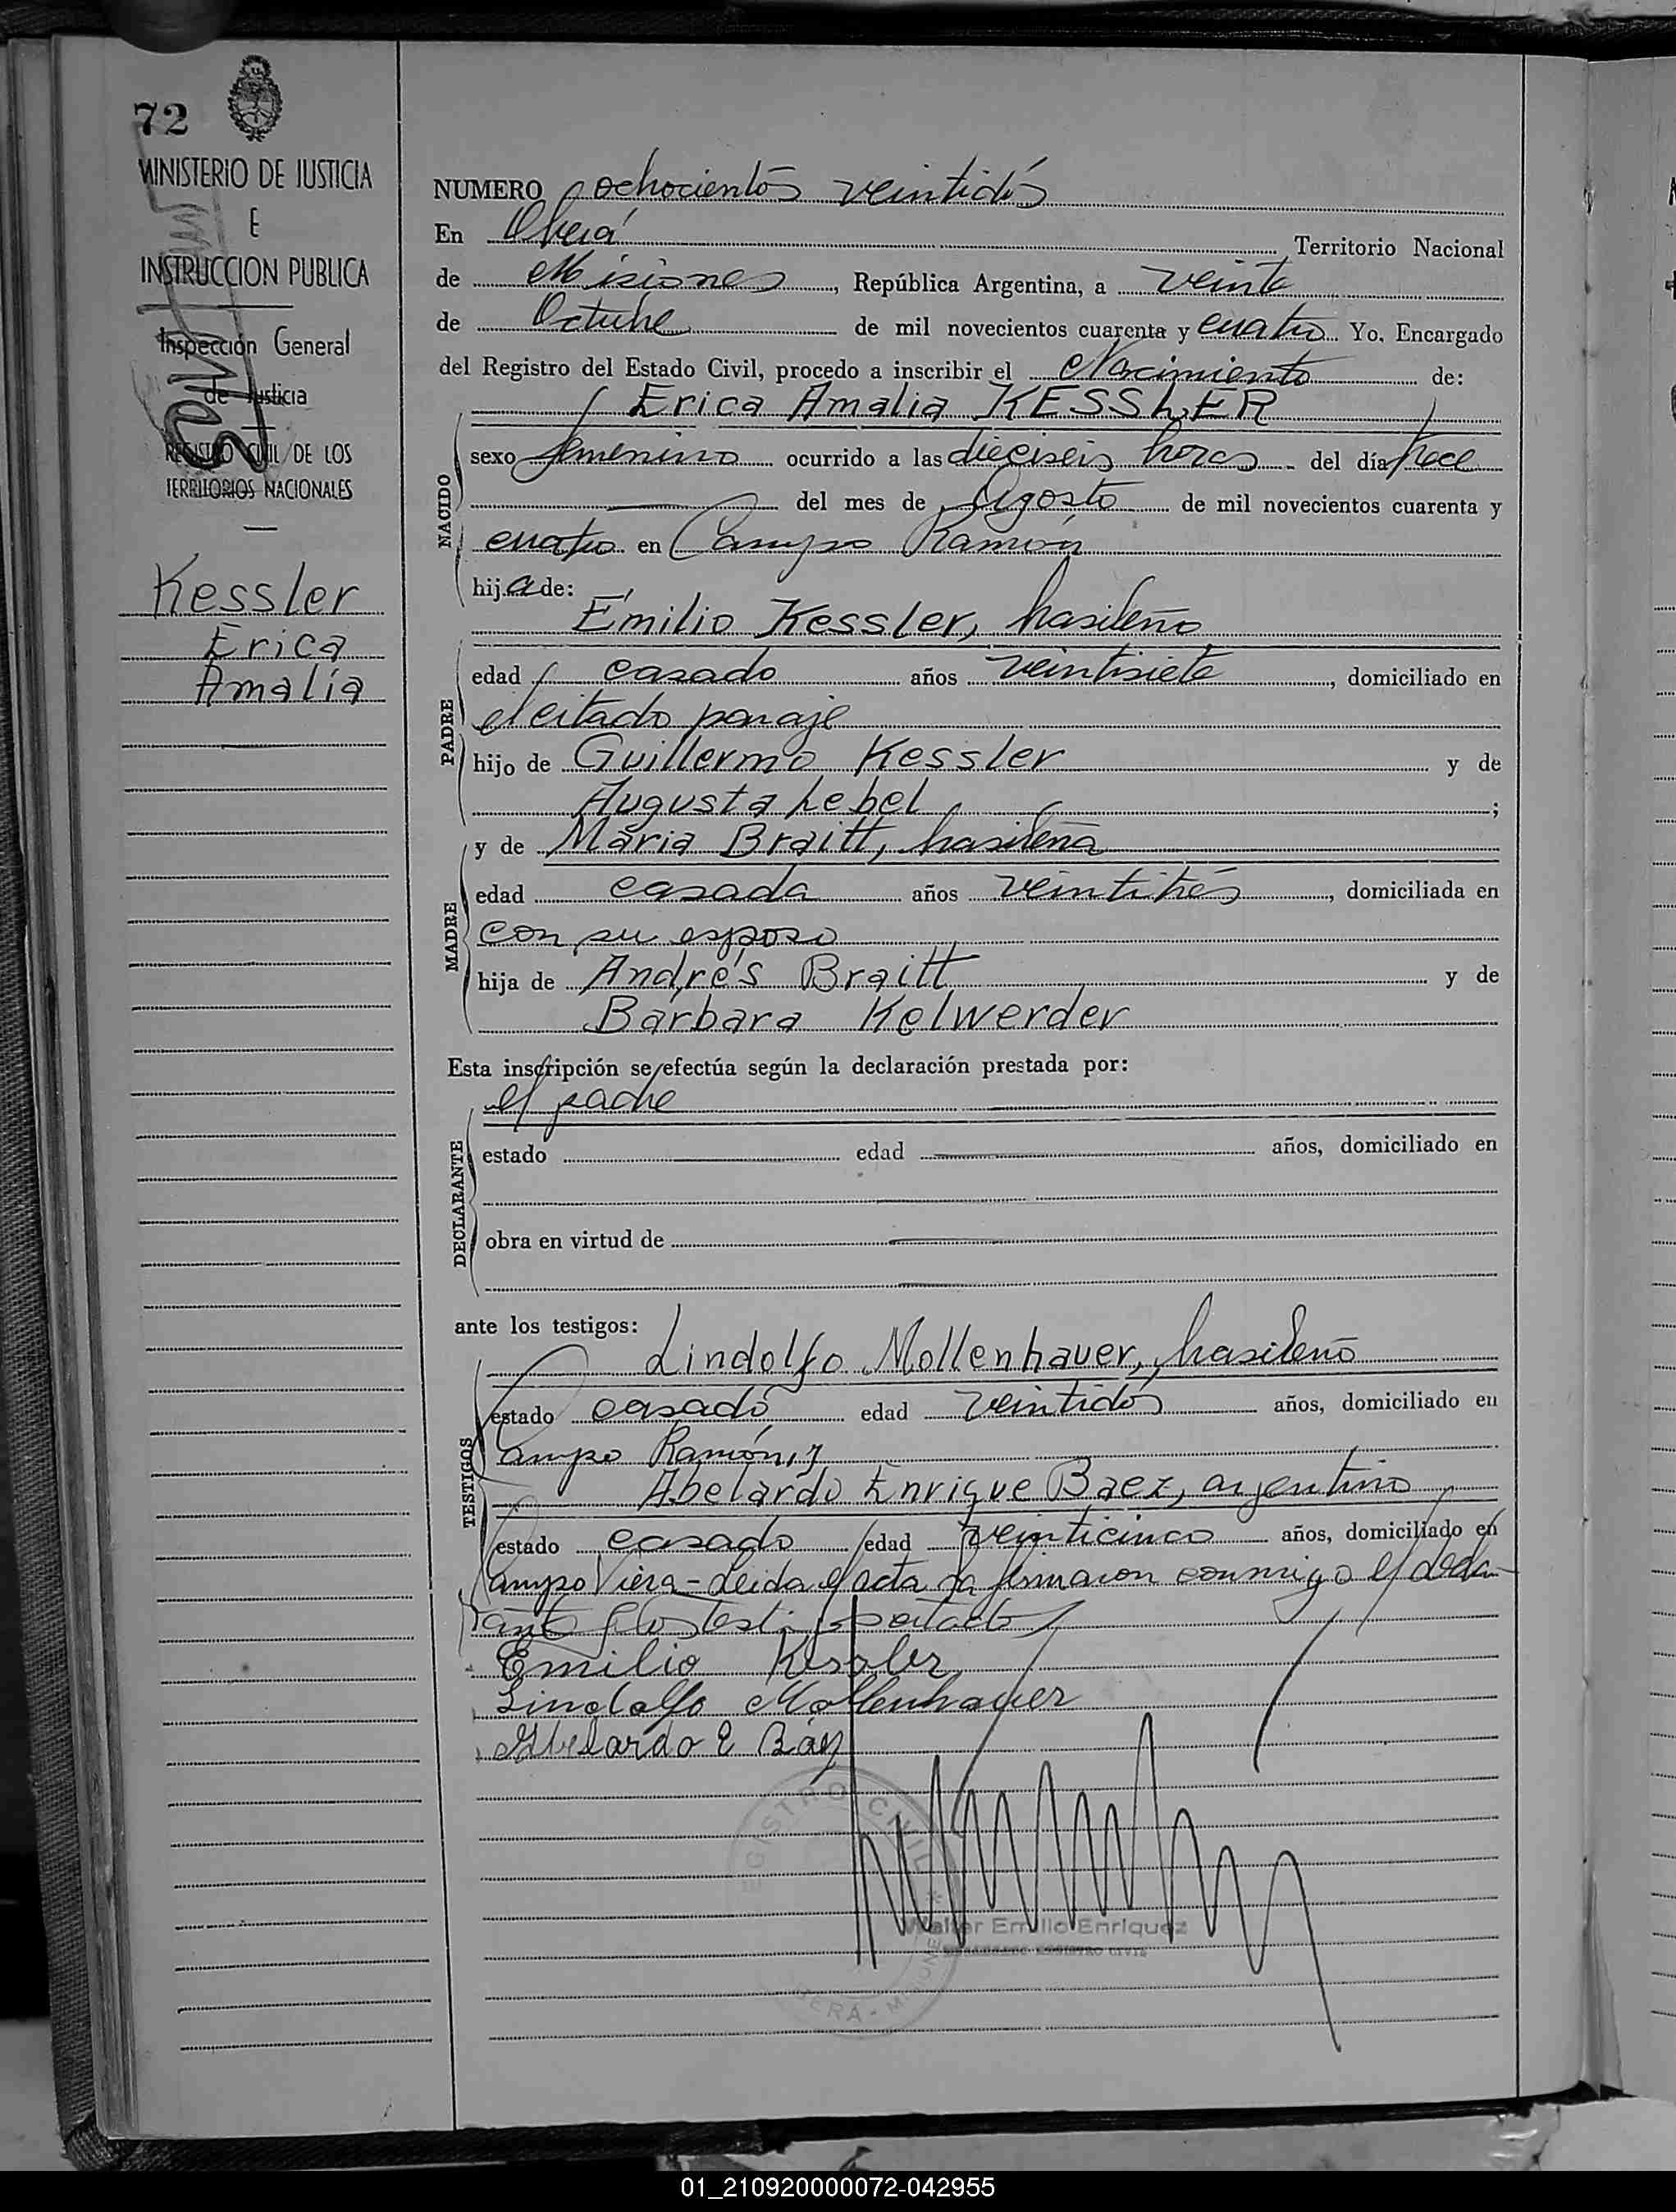 72
MINISTERIO DE JUSTICIA
E
INSTRUCCION PUBLICA
Inspección General
de Justicia
REGISTRO CIVIL DE LOS
TERRITORIOS NACIONALES
Kessler
Erica
Amalia
NUMERO ochocientos veintidós
En Oberá Territorio Nacional
de Misiones, República Argentina, a veinte
de Octubre de mil novecientos cuarenta y cuatro Yo. Encargado
del Registro del Estado Civil, procedo a inscribir el Nacimiento de:
Erica Amalia KESSLER
NACIDO
sexo femenino ocurrido a las dieciseis horas del día trece
del mes de Agosto de mil novecientos cuarenta y
cuatro en Campo Ramón
hija de:
Emilio Kessler, brasileño
PADRE
edad casado años veintisiete, domiciliado en
el citado paraje
hijo de Guillermo Kessler y de
Augusta Lebel;
y de María Braitt, brasileña
MADRE
edad casada años veintitrés, domiciliada en
con su esposo
hija de Andrés Braitt y de
Bárbara Kelwerder
Esta inscripción se efectúa según la declaración prestada por:
el padre
DECLARANTE
estado edad años, domiciliado en
obra en virtud de
ante los testigos:
Lindolfo Mollenhauer, brasileño
TESTIGOS
estado casado edad veintidós años, domiciliado en
Campo Ramón, y
Abelardo Enrique Baez, argentino
estado casado edad veinticinco años, domiciliado en
Campo Viera - Leida el acta la firmaron conmigo el decla-
rante y los testigos
Emilio Kessler
Lindolfo Mollenhauer
Abelardo E Báez
REGISTRO CIVIL
Walter Emilio Enriquez
ENCARGADO REGISTRO CIVIL
OBERA - MISIONES
01_210920000072-042955